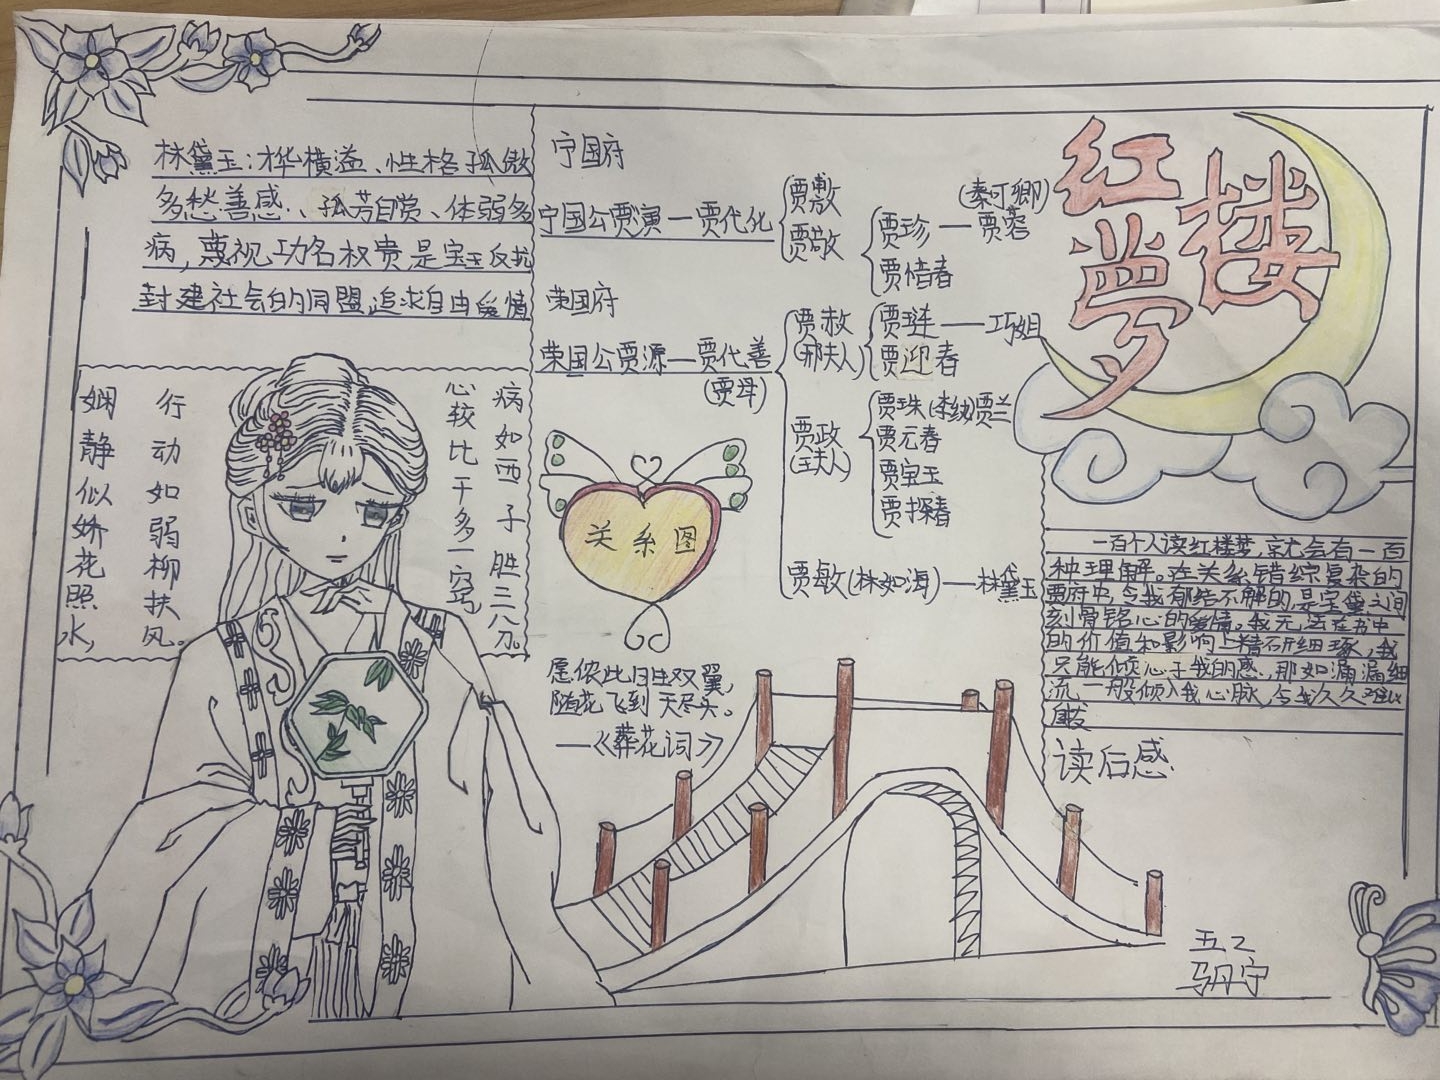 红楼梦
林黛玉：桦横溢、性格孤傲
多愁善感、孤芳自赏、体弱多
病，蔑视功名权贵,是宝玉反抗
封建社会的同盟追求自由爱情
娴静似娇花照水，
行动如弱柳扶风。
心较比干多一窍
病如西子胜三分。
宁国府
宁国公贾演—贾代化
贾敷
贾敬
贾珍—贾蓉
(秦可卿)
贾惜春
荣国府
荣国公贾源—贾代善
(贾母)
贾赦
(邢夫人)
贾琏—巧姐
贾迎春
贾政
(王夫人)
贾珠(李纨)贾兰
贾元春
贾宝玉
贾探春
贾敏(林如海)—林黛玉
关系图
愿侬此日生双翼,
随花飞到天尽头。
—《葬花词》
一百个人读红楼梦,就会有一百
种理解。在关系错综复杂的
贾府中,令我郁结不解的,是宝黛之间
刻骨铭心的爱情。我无法在书中
的价值和影响上精研细琢,我
只能倾心于我的感.,那如潺潺细
流一般倾入我心脉,令我久久难以
读后感
五2
马丹宁